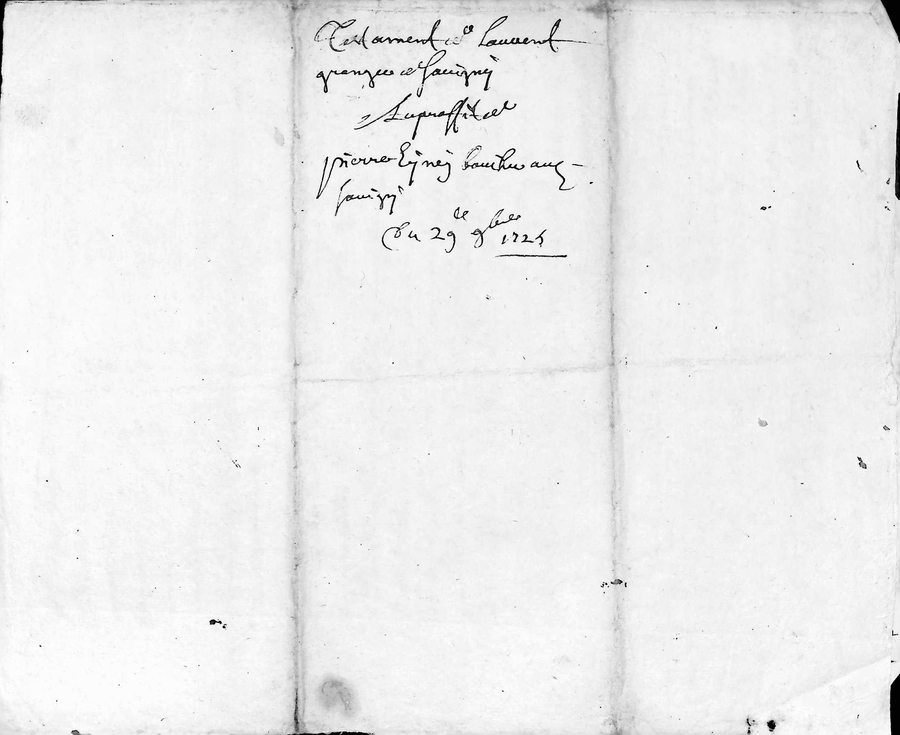 Testament de Laurent
granger de Savigny
Au proffit de
pierre Eyney boucher aud
Savigny
Du 29e 9bre 1725